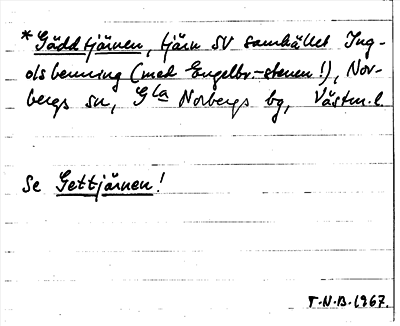 *Gäddtjärnen, tjärn SV samhället Ing-
olsbenning (med Engelbr.-stenen!), Nor-
bergs sn, Gla Norbergs bg, Västm. l.
Se Gettjärnen!
T.N.B. 1967.